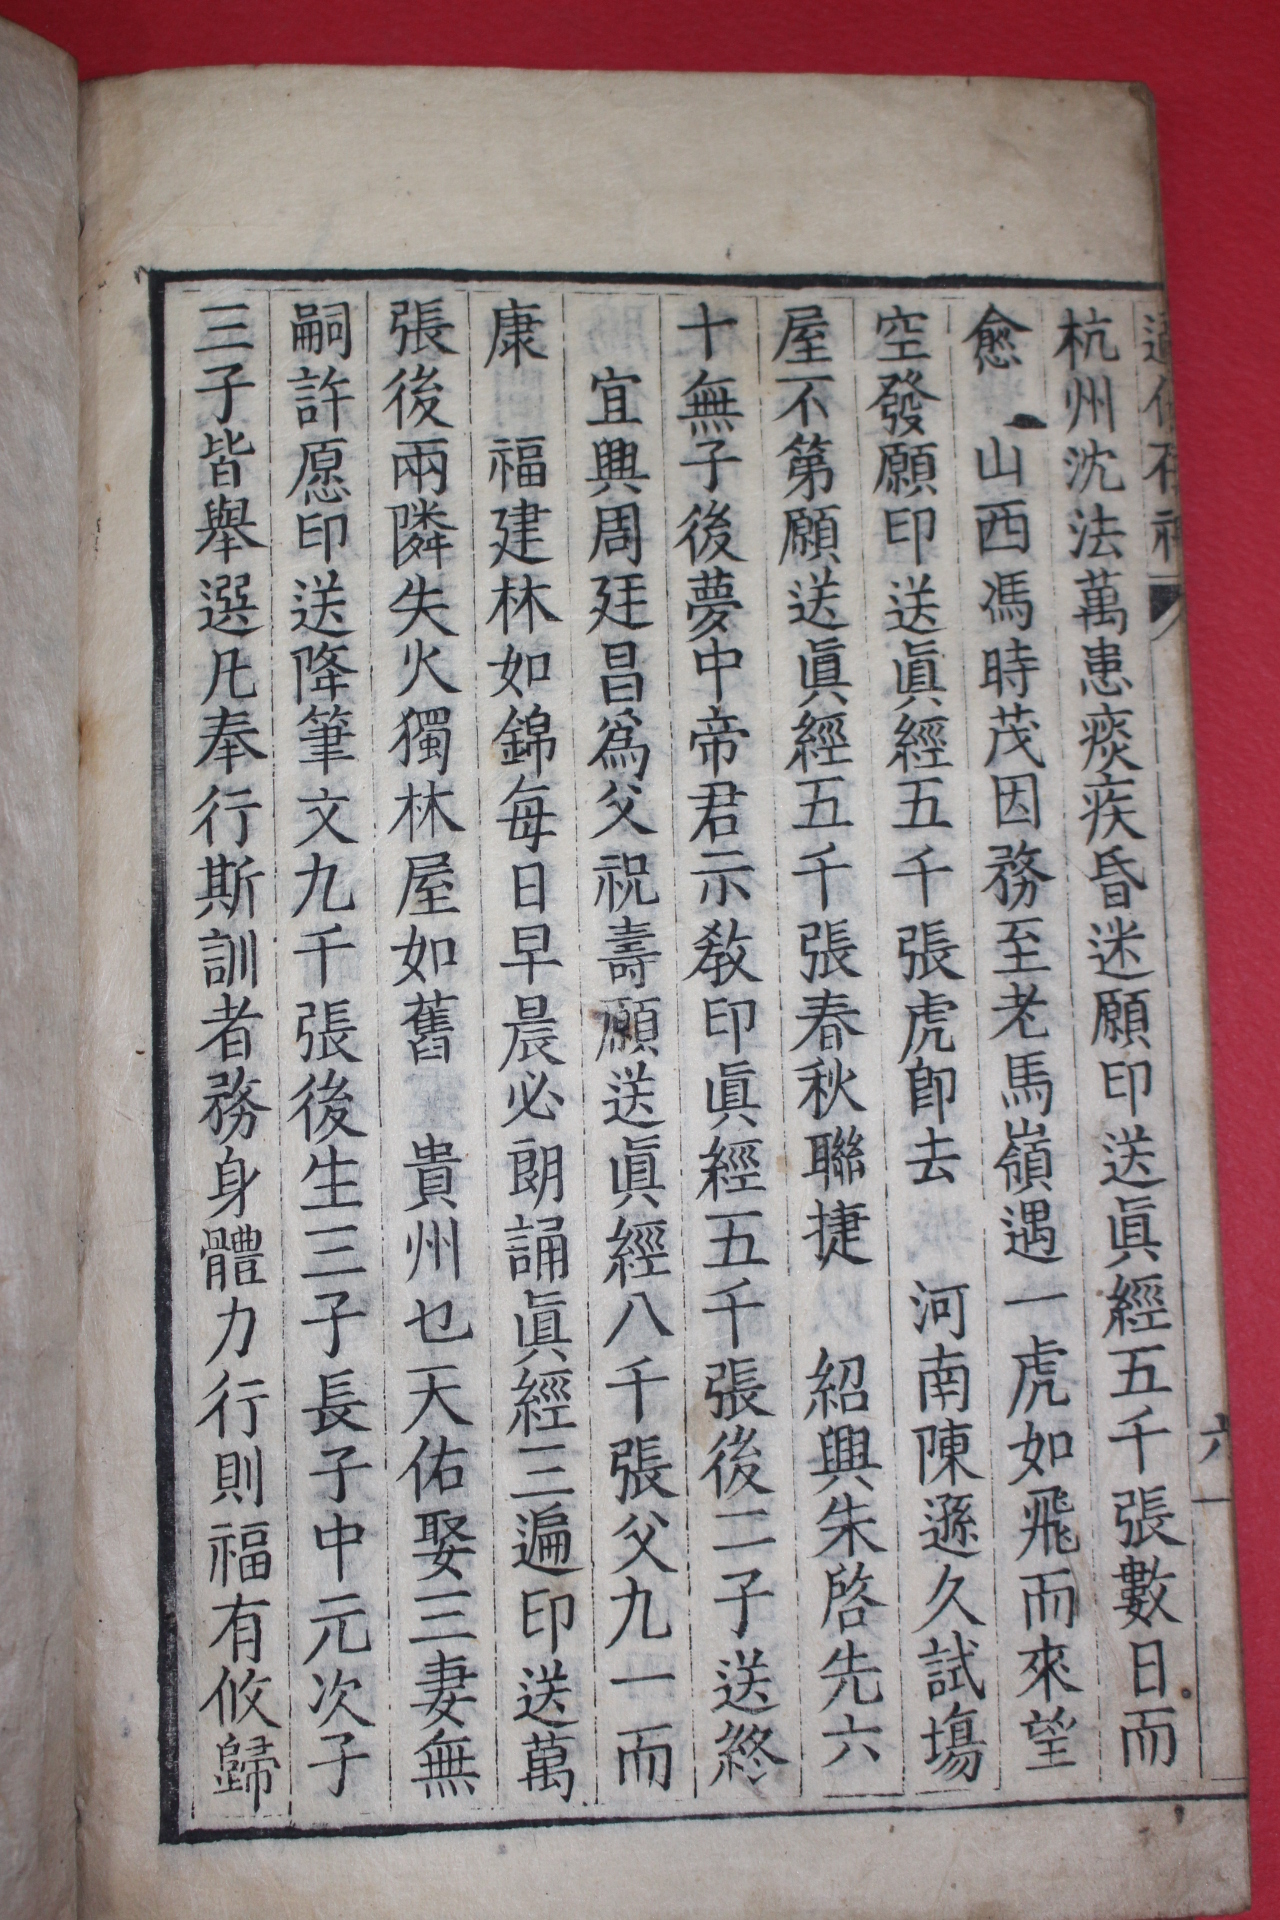 六
杭州沈法萬患痰疾昏迷願印送眞經五千張數日而
愈 山西馮時茂因務至老馬嶺遇一虎如飛而來望
空發願印送眞經五千張虎卽去 河南陳遜久試塲
屋不第願送眞經五千張春秋聯捷 紹興朱啓先六
十無子後夢中帝君示敎印眞經五千張後二子送終
宜興周廷昌爲父祝壽願送眞經八千張父九一而
康 福建林如錦每日早晨必朗誦眞經三遍印送萬
張後兩隣失火獨林屋如舊 貴州乜天佑娶三妻無
嗣許愿印送降筆文九千張後生三子長子中元次子
三子皆舉選凡奉行斯訓者務身體力行則福有攸歸